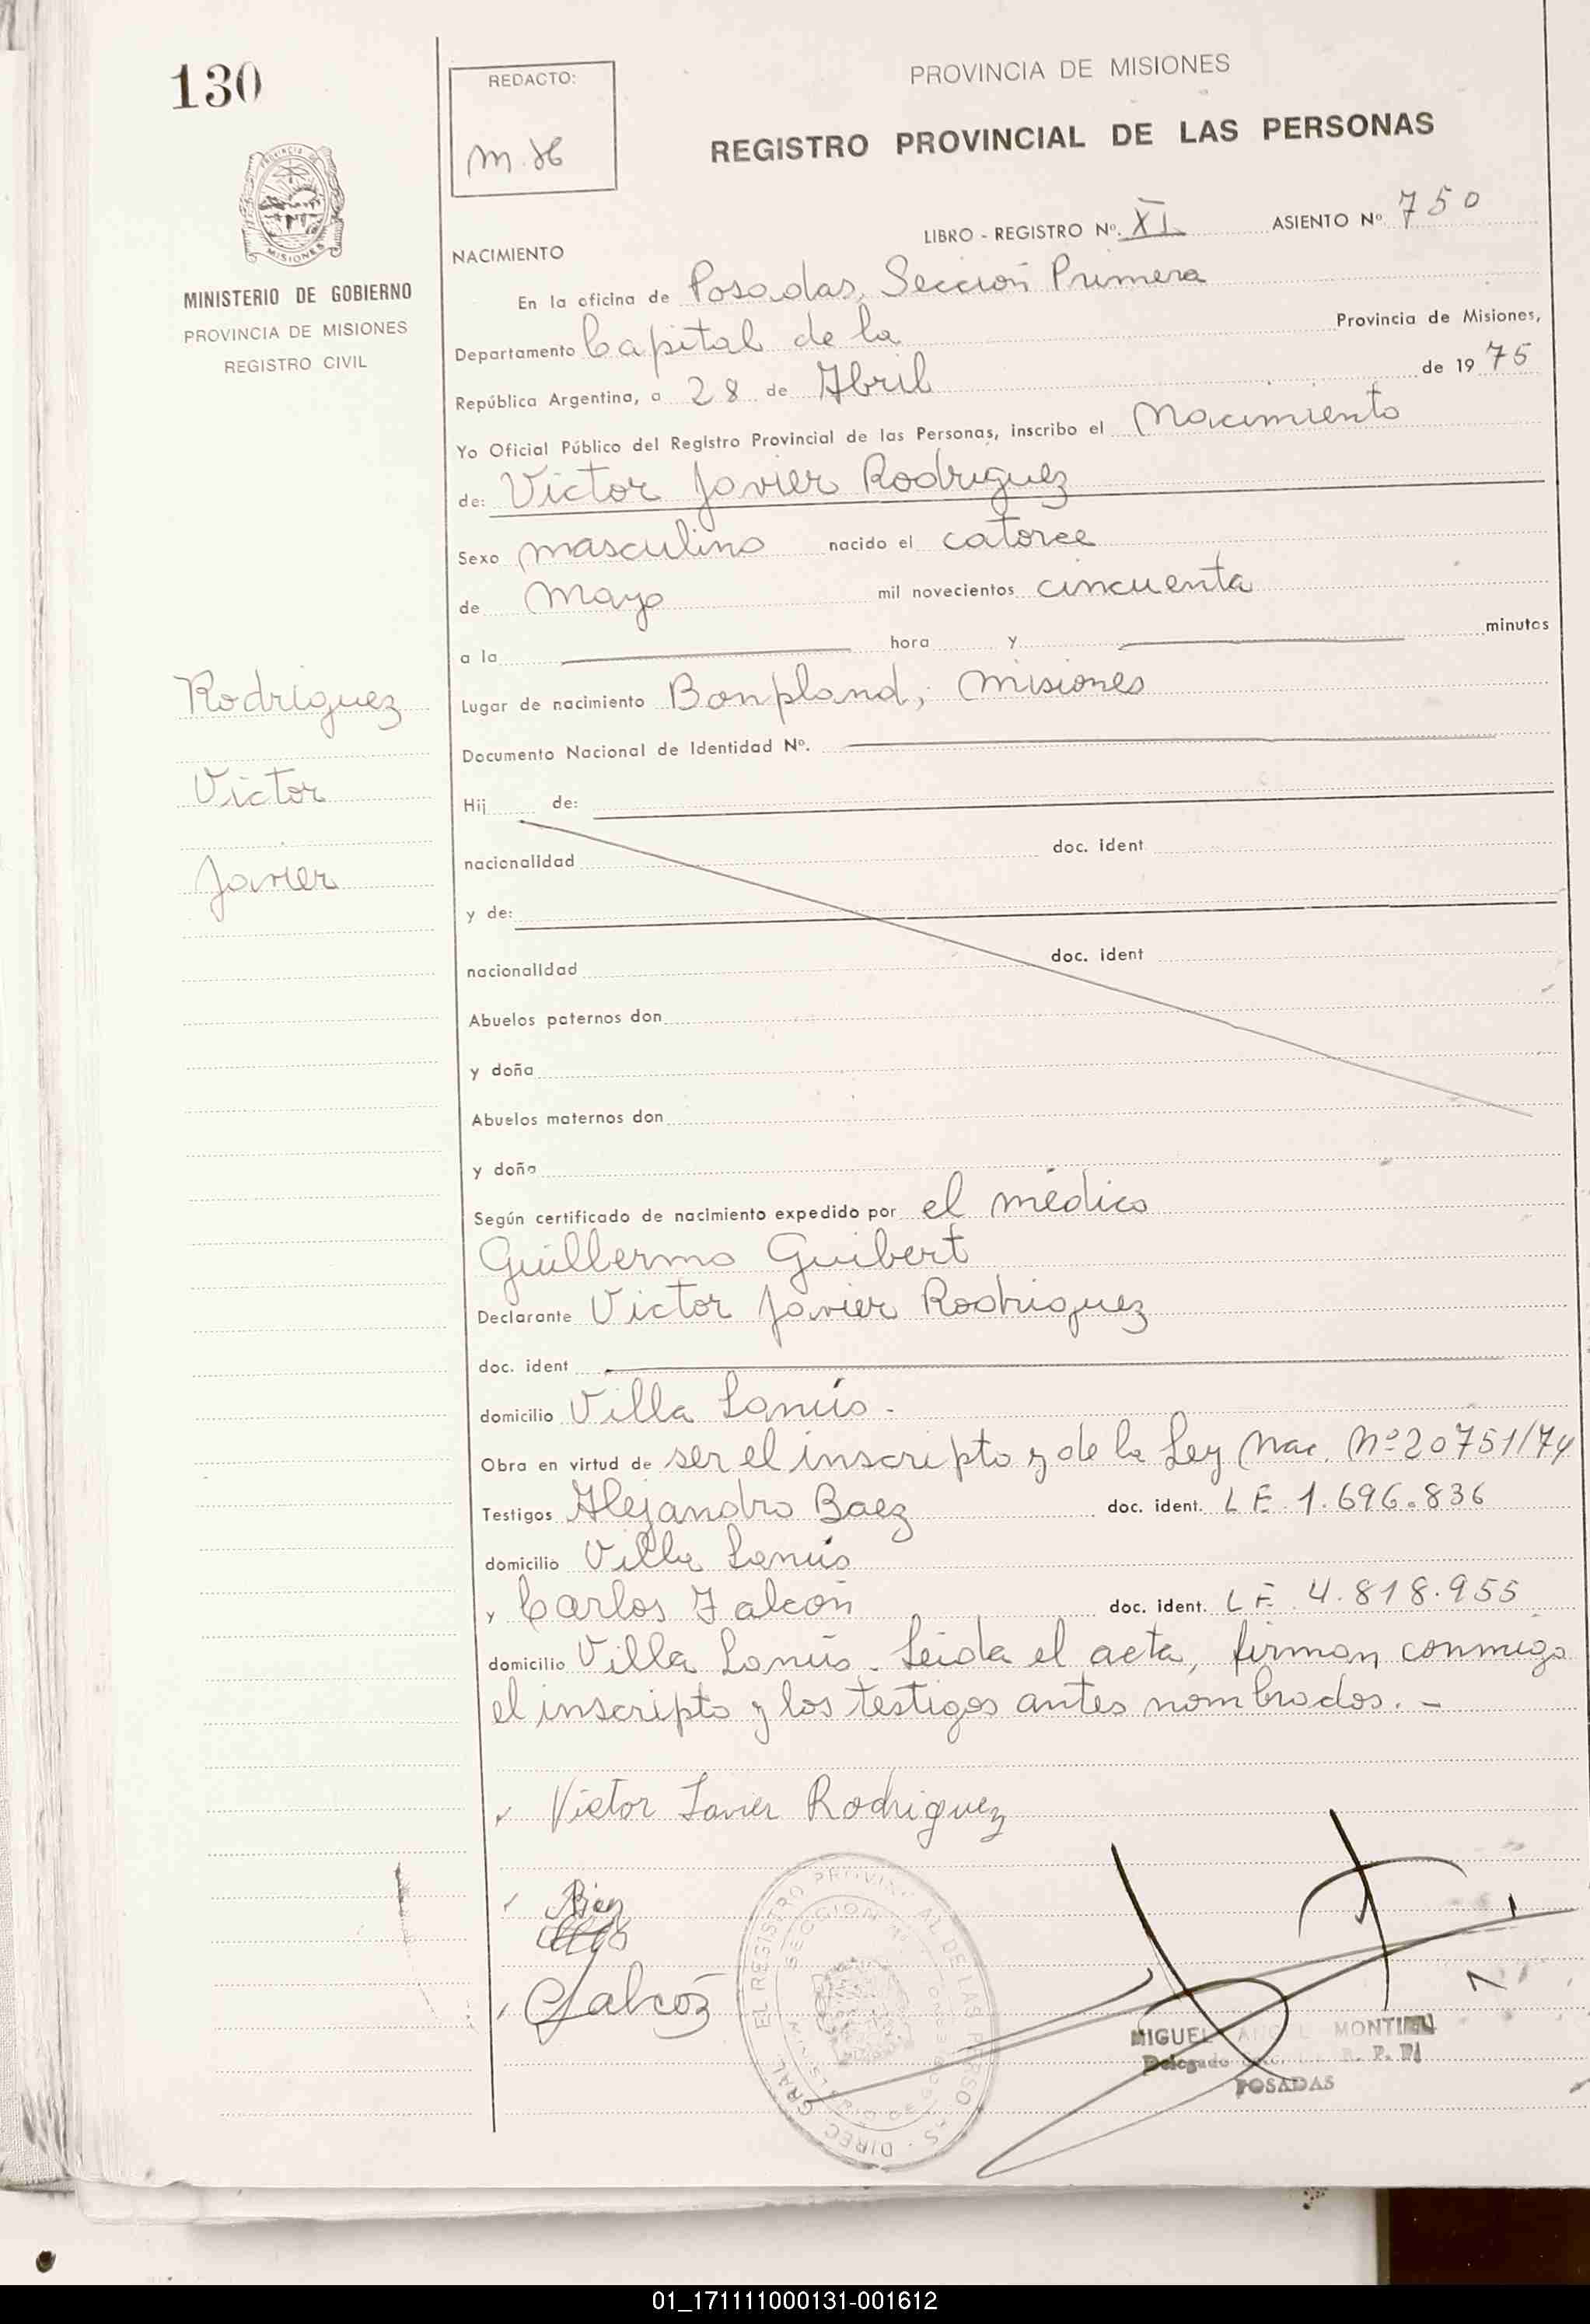 130
REDACTO:
m.H
PROVINCIA DE MISIONES
REGISTRO PROVINCIAL DE LAS PERSONAS
PROVINCIA DE
MISIONES
MINISTERIO DE GOBIERNO
PROVINCIA DE MISIONES
REGISTRO CIVIL
LIBRO - REGISTRO Nº. XI ASIENTO Nº 750
NACIMIENTO
En la oficina de Posadas, Sección Primera
Departamento Capital de la Provincia de Misiones,
República Argentina, a 28 de Abril de 1975
Yo Oficial Público del Registro Provincial de las Personas, inscribo el Nacimiento
de: Victor Javier Rodriguez
Sexo masculino nacido el catorce
de Mayo mil novecientos cincuenta
a la hora y minutos
Rodriguez
Victor
Javier
Lugar de nacimiento Bonpland, Misiones
Documento Nacional de Identidad Nº.
Hij de:
nacionalidad doc. ident
y de:
nacionalidad doc. ident
Abuelos paternos don
y doña
Abuelos maternos don
y doña
Según certificado de nacimiento expedido por el médico
Guillermo Guibert
Declarante Victor Javier Rodriguez
doc. ident
domicilio Villa Lanús.
Obra en virtud de ser el inscripto y de la Ley Nac. Nº 20751/74
Testigos Alejandro Baez doc. ident. L E 1.696.836
domicilio Villa Lanús
y Carlos Falcón doc. ident. L E. 4.818.955
domicilio Villa Lanús. Leida el acta, firman conmigo
el inscripto y los testigos antes nombrados. -
Victor Javier Rodriguez
CFalcoz
MIGUEL ANGEL MONTIEL
Delegado R. P. P.
POSADAS
01_171111000131-001612